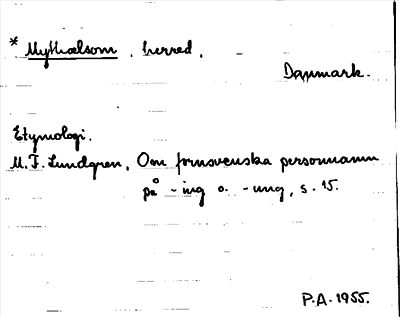 * Mythælsom, herred,
Danmark.
Etymologi.
M. F. Lundgren, Om fornsvenska personnamn
på -ing o. -ung, s. 15.
P.A. 1955.